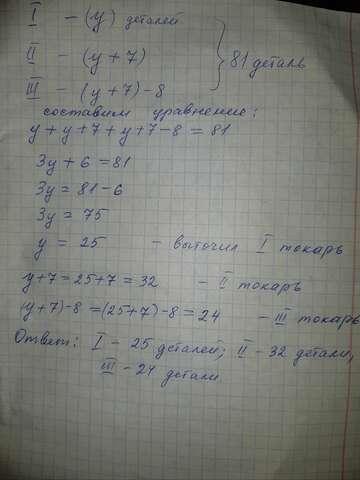 I – (y) деталей
II – (y + 7) } 81 деталь
III – (y + 7) – 8
составим уравнение:
y + y + 7 + y + 7 – 8 = 81
3y + 6 = 81
3y = 81 – 6
3y = 75
y = 25 – выточил I токарь
y + 7 = 25 + 7 = 32 – II токарь
(y + 7) – 8 = (25 + 7) – 8 = 24 – III токарь
Ответ: I – 25 деталей; II – 32 детали,
III – 24 детали.